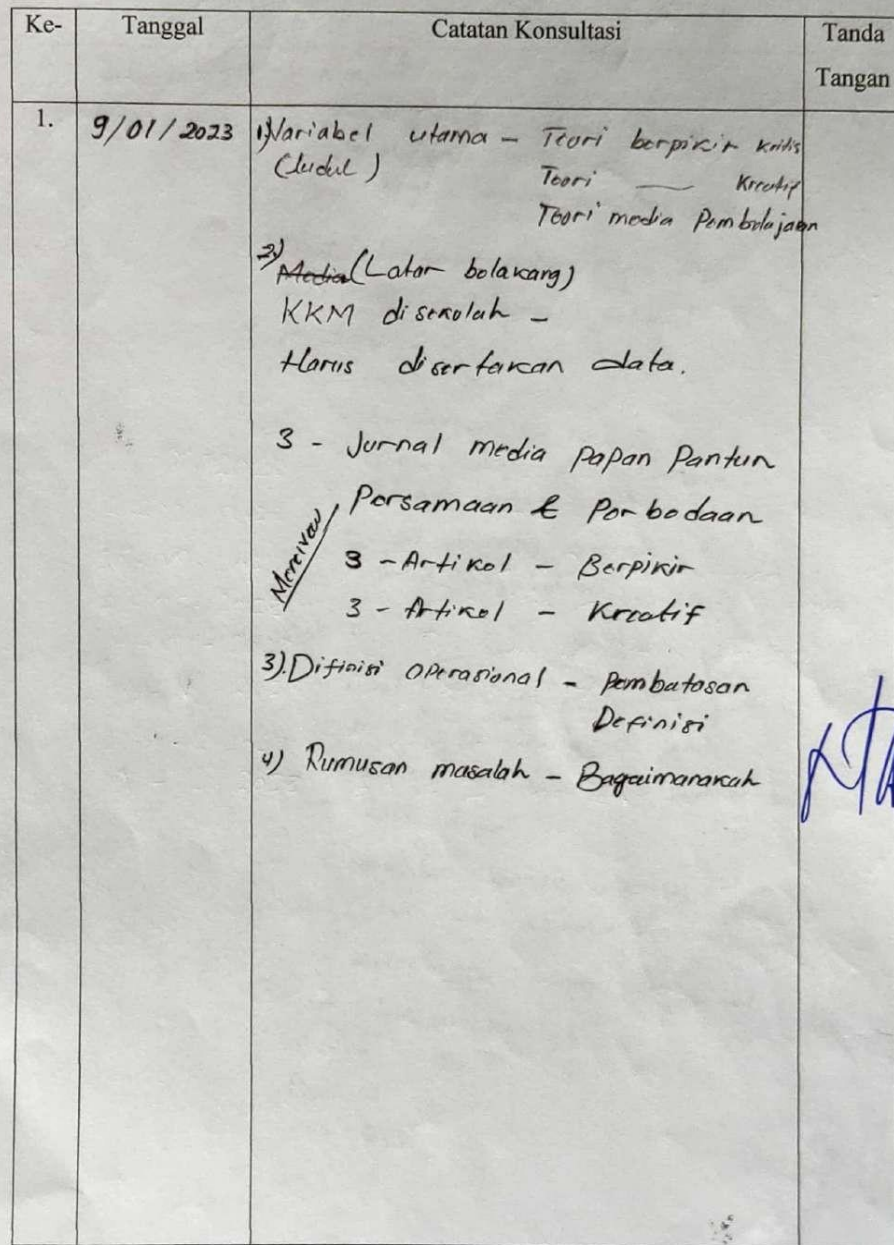 Ke- Tanggal Catatan Konsultasi Tanda Tangan
1. 9/01/2023 1) Variabel utama - Teori berpikir kritis
(Judul) Teori — Kreatif
Teori media Pembelajaan
2) Media (Latar belakang)
KKM disekolah -
Harus disertakan data.
3 - Jurnal media Papan Pantun
Persamaan & Perbedaan
Mereivew
3 - Artikel - Berpikir
3 - Artikel - Kreatif
3). Difinisi Operasional - Pembatasan
Definisi
4) Rumusan masalah - Bagaimanakah